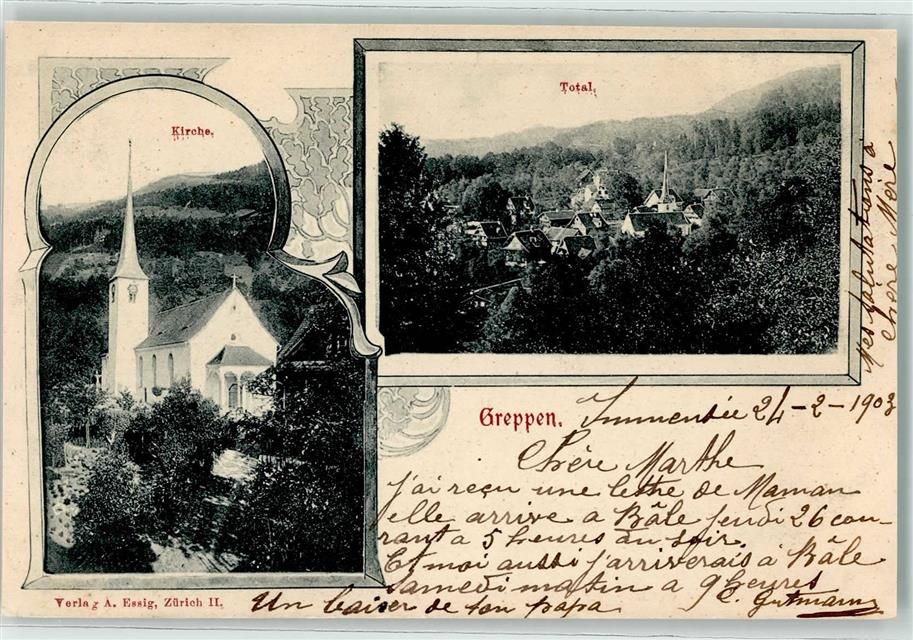 Kirche.
Total.
Greppen.
Immensée 24-2-1903
Chère Marthe
j'ai reçu une lettre de Maman
elle arrive a Bâle jeudi 26 cou-
rant a 5 heures au soir.
Et moi aussi j'arriverais à Bâle
Samedi matin a 9 heures
C. Gutmann
Un baiser de ton papa
Mes salutations a
chère Mère
Verlag A. Essig, Zürich II.